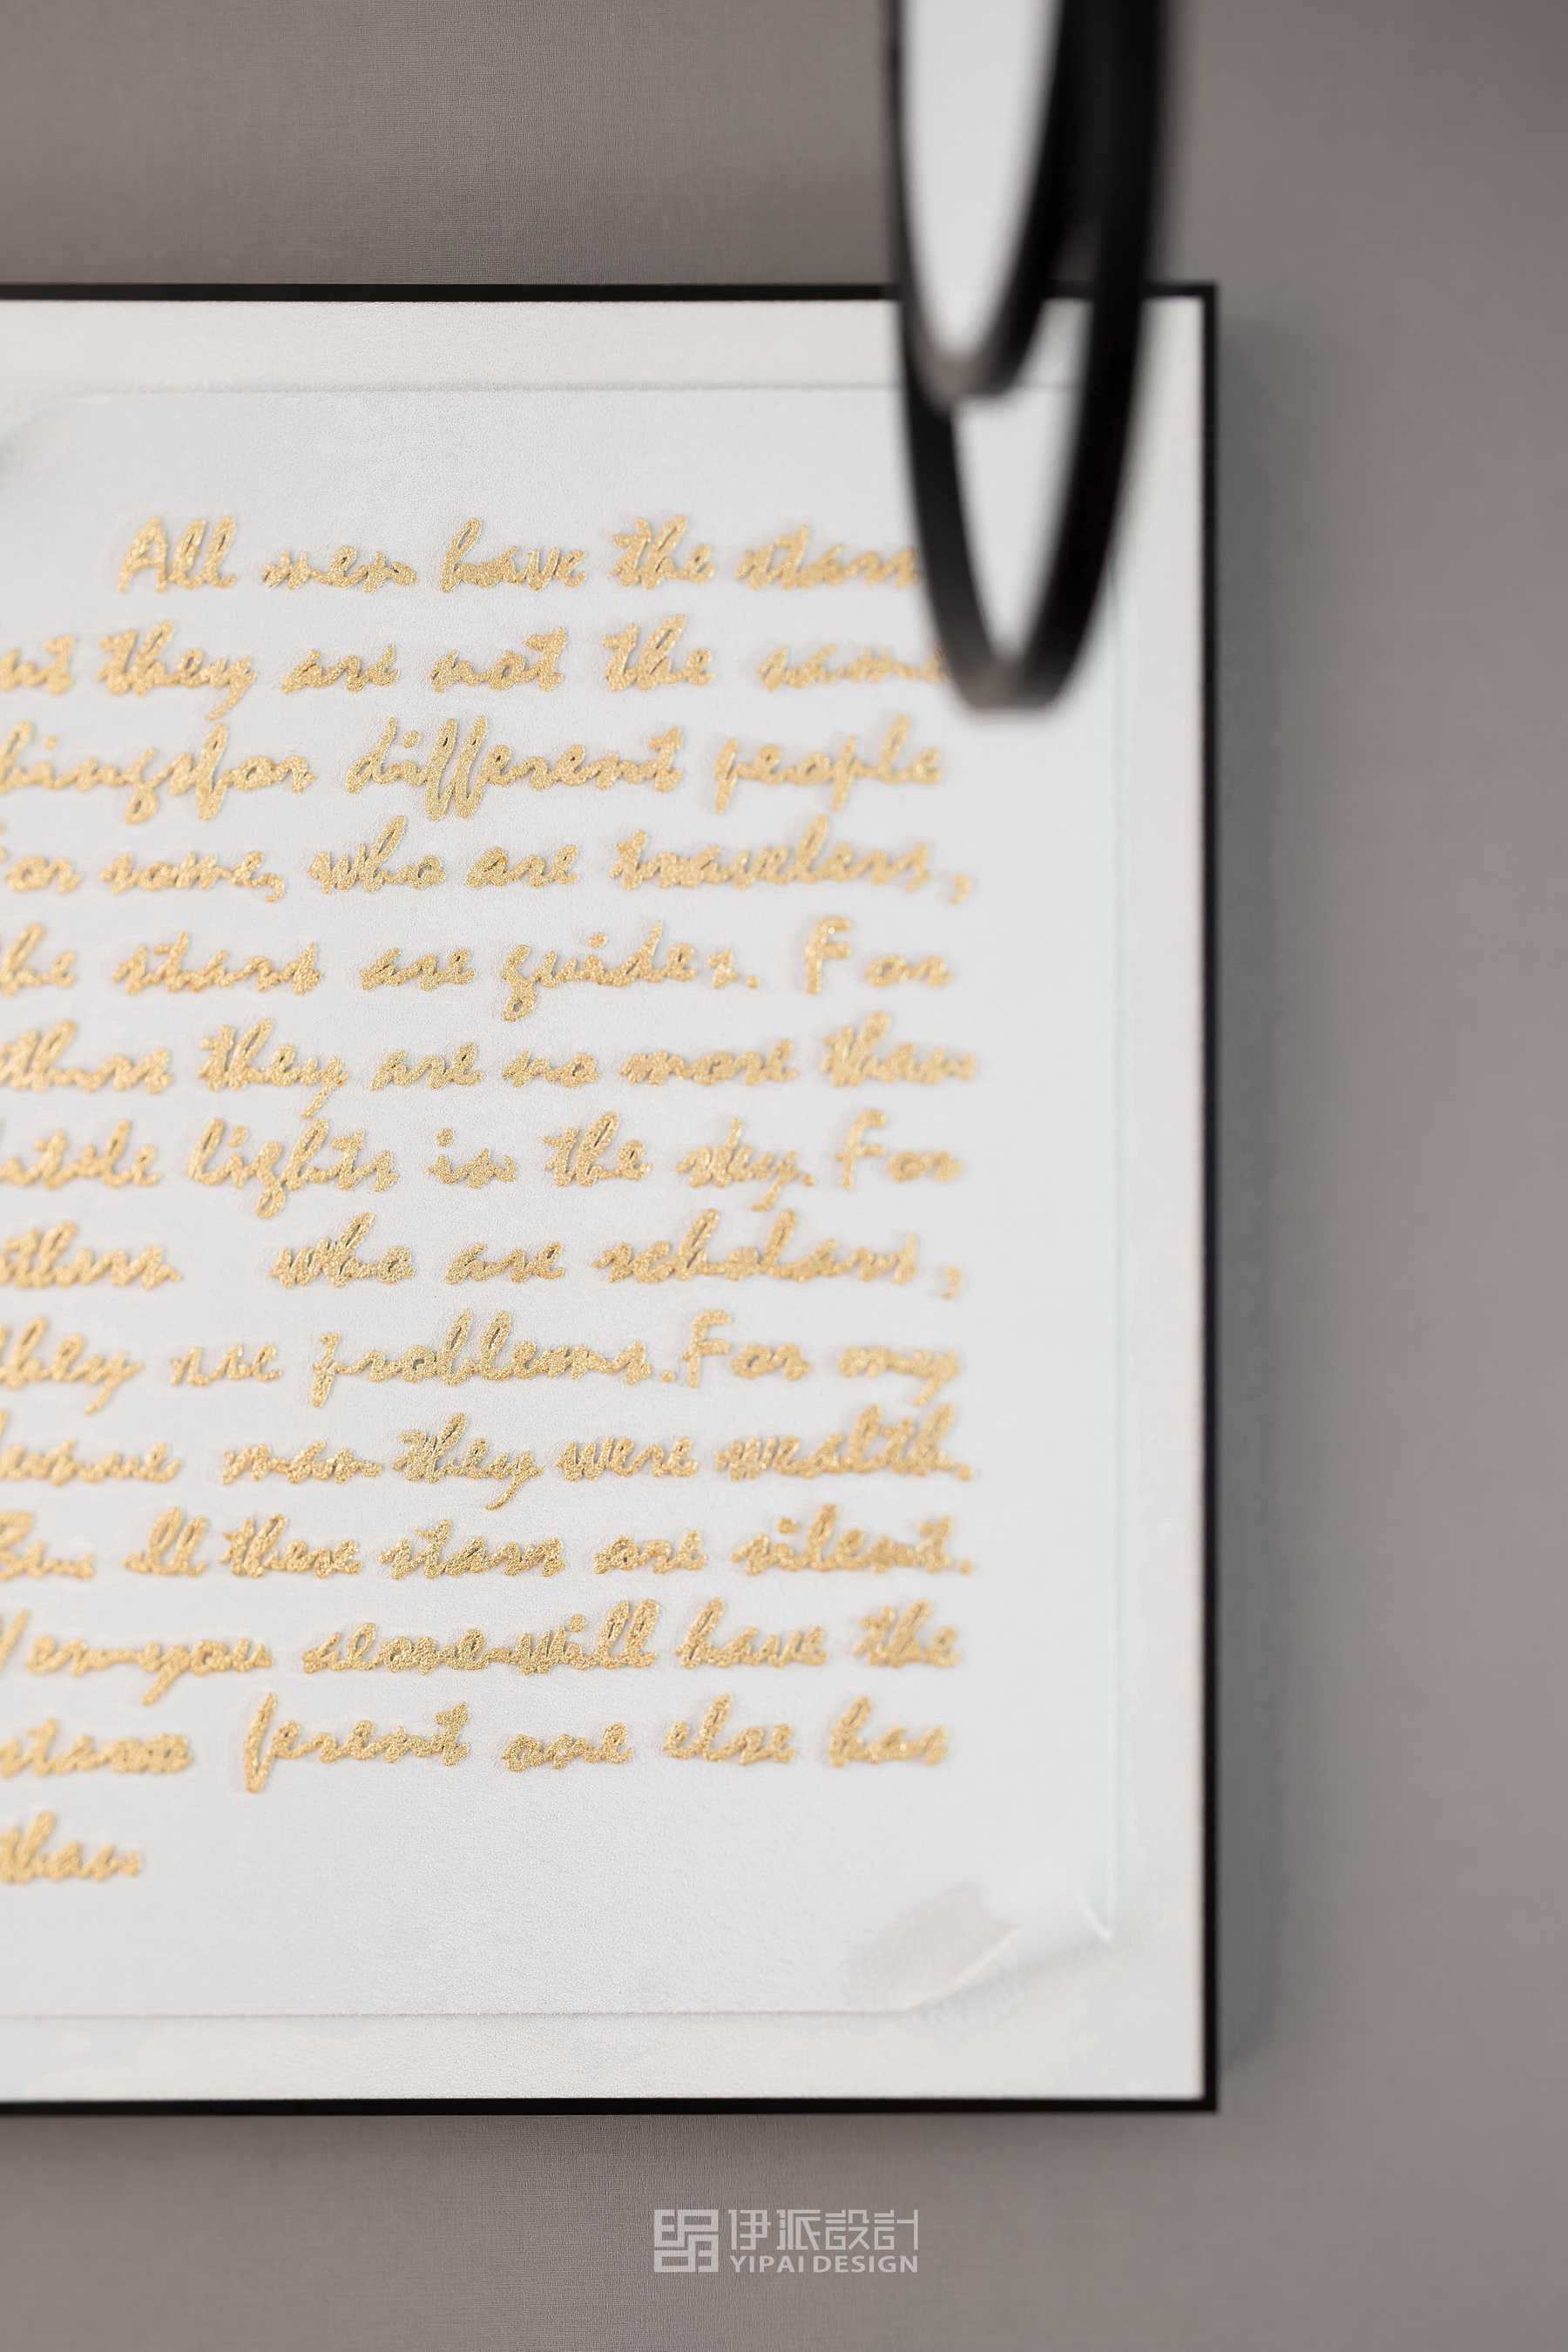 All men have the stars
they are not the same
for different people
some, who are travelers,
stars are guides. For
they are no more than
lights in the sky. For
who are scholars,
are problems. For my
man they were wealth.
all these stars are silent.
you alone will have the
one else has
伊派設計
YIPAI DESIGN